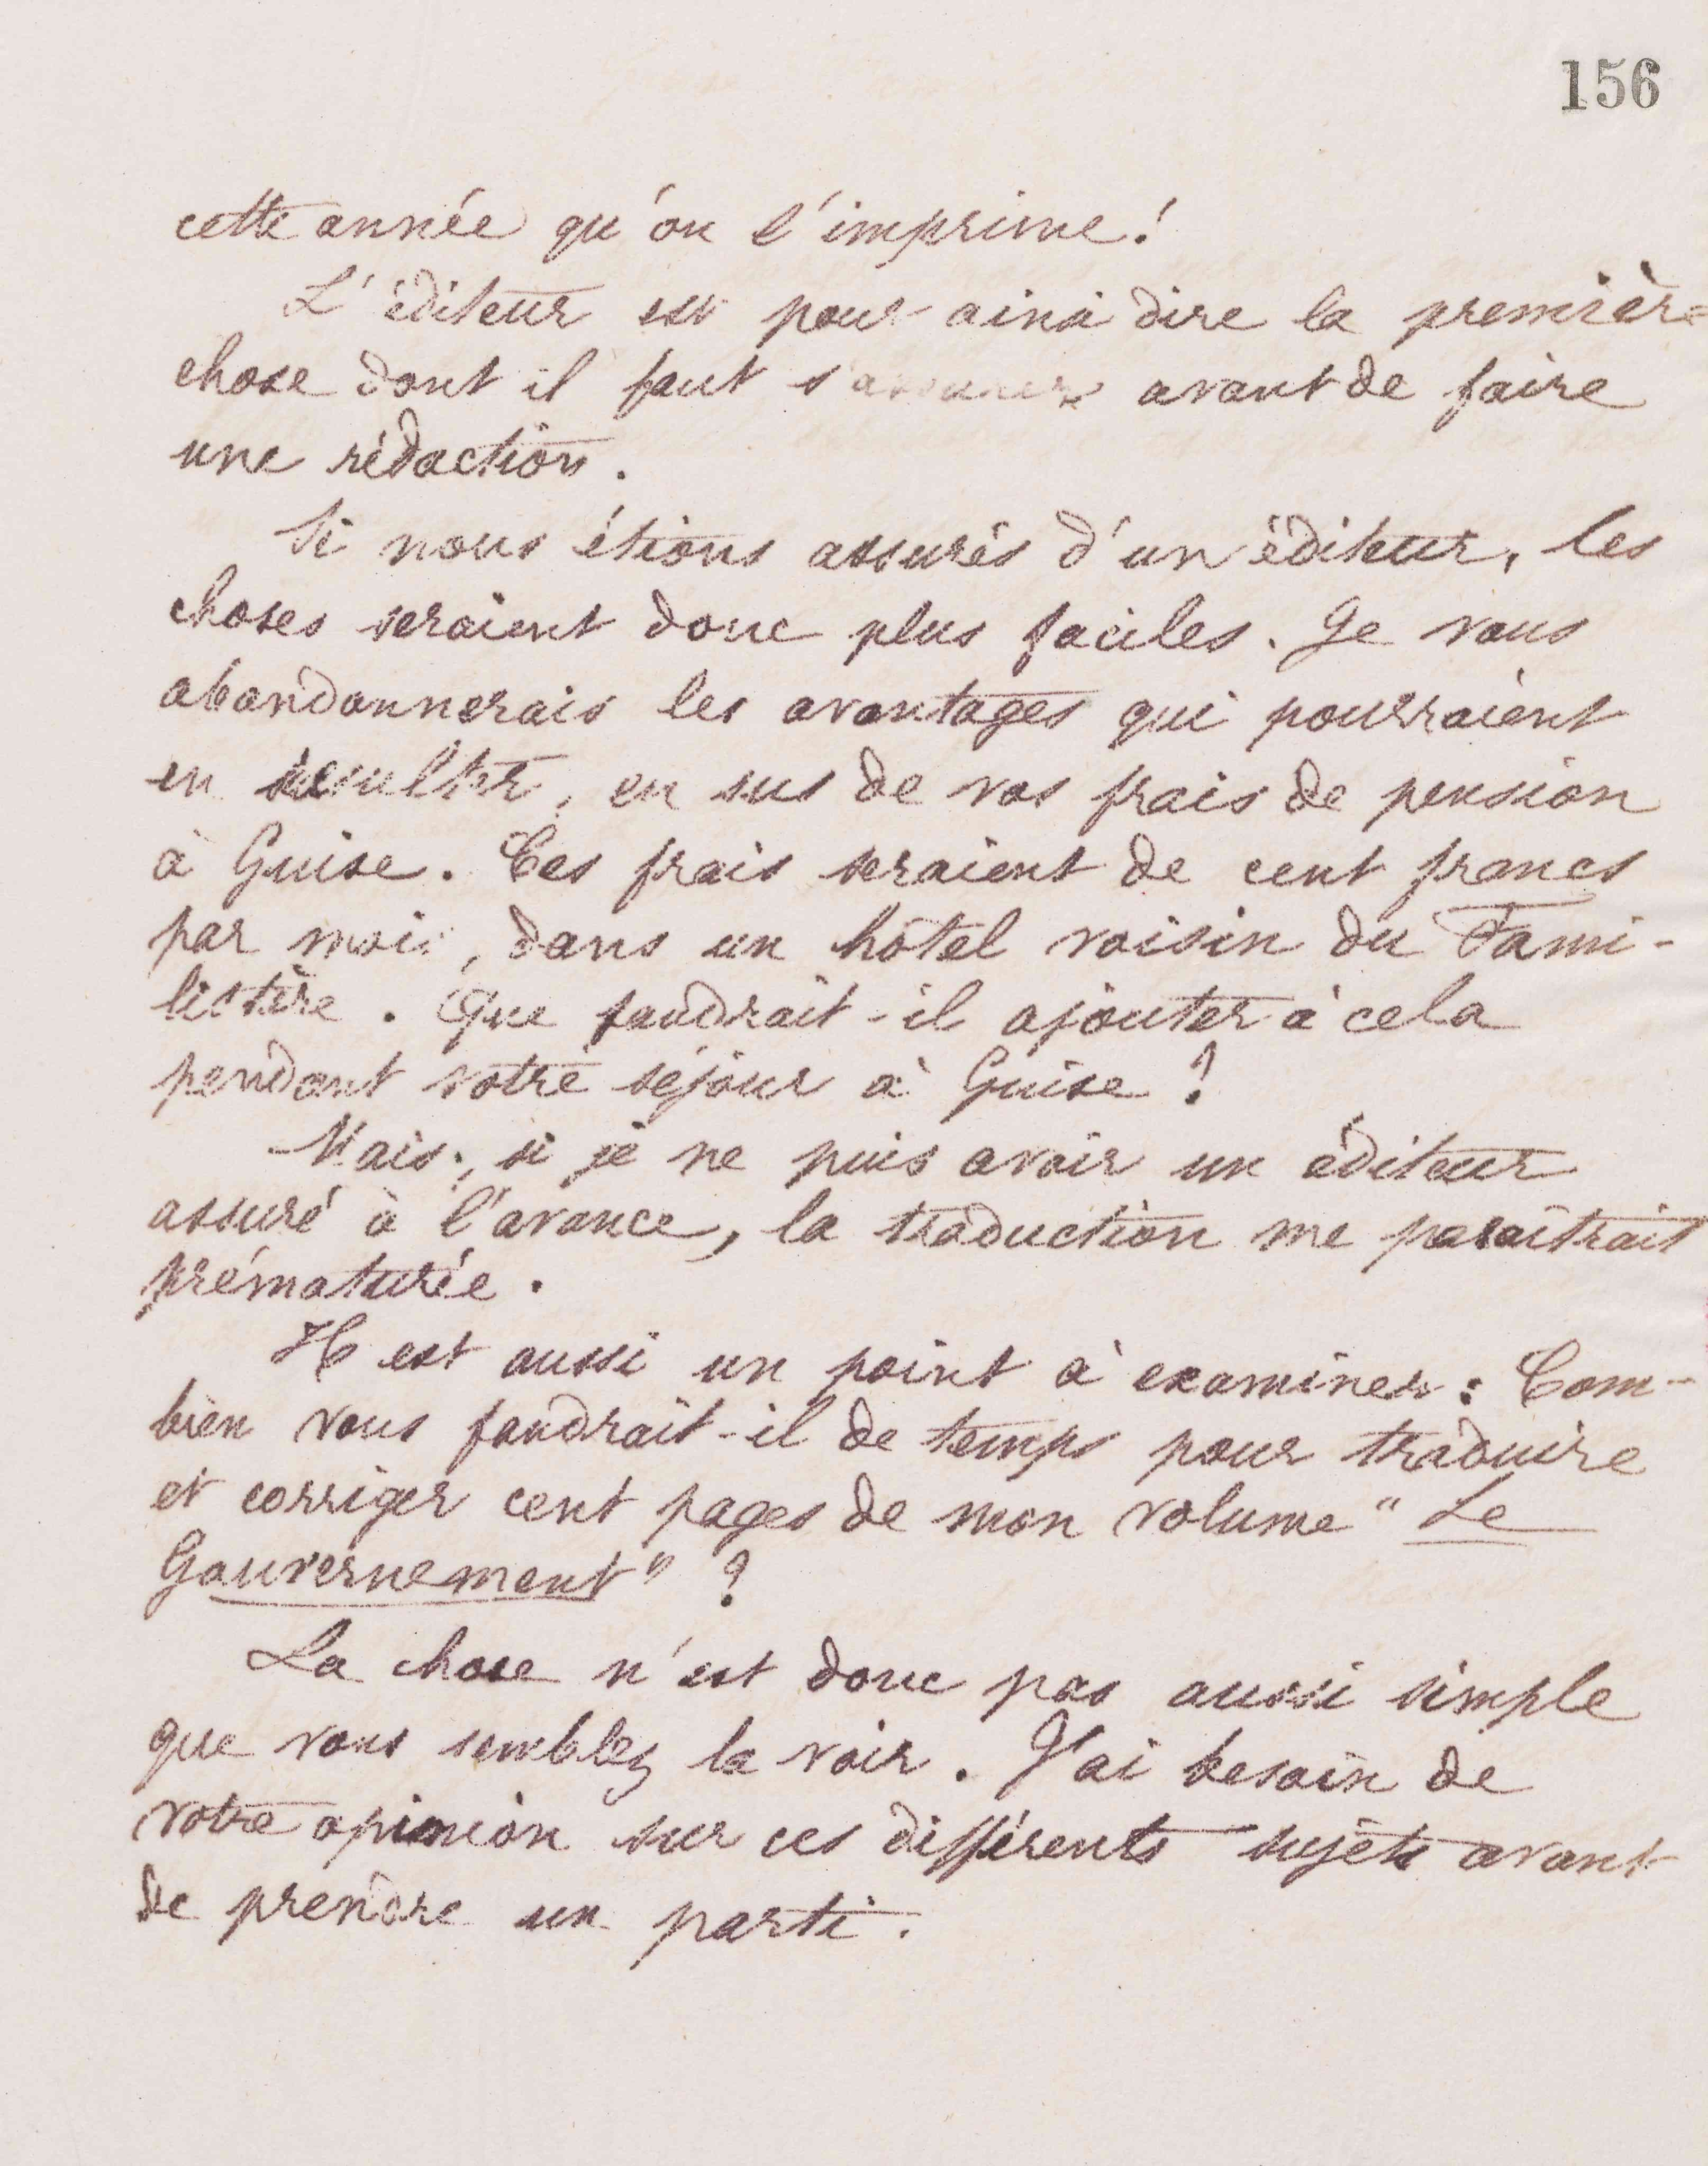 156
cette année qu'on l'imprime!
L'éditeur est pour ainsi dire la première
chose dont il faut s'assurer avant de faire
une rédaction.
Si nous étions assurés d'un éditeur, les
choses seraient donc plus faciles. Je vous
abandonnerais les avantages qui pourraient
en résulter, en sus de vos frais de pension
à Guise. Ces frais seraient de cent francs
par mois, dans un hôtel voisin du Fami-
listère. Que faudrait-il ajouter à cela
pendant votre séjour à Guise?
Mais, si je ne puis avoir un éditeur
assuré à l'avance, la traduction me paraîtrait
prématurée.
Il est aussi un point à examiner: Com-
bien vous faudrait-il de temps pour traduire
et corriger cent pages de mon volume "Le
Gouvernement"?
La chose n'est donc pas aussi simple
que vous semblez la voir. J'ai besoin de
votre opinion sur ces différents sujets avant
de prendre un parti.